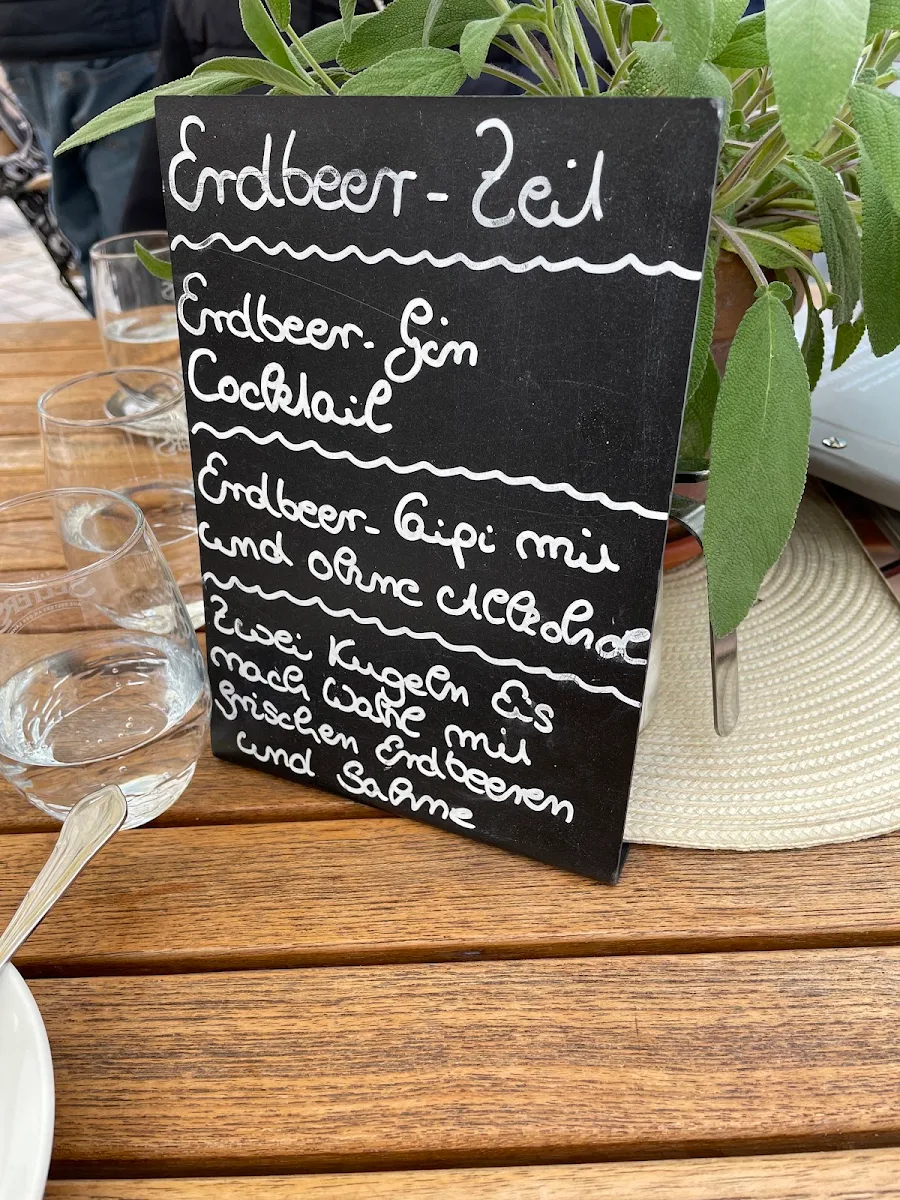 Erdbeer-Zeit
Erdbeer-Gin
Cocktail
Erdbeer-Caipi mit
und ohne Alkohol
Zwei Kugeln Eis
nach Wahl mit
frischen Erdbeeren
und Sahne